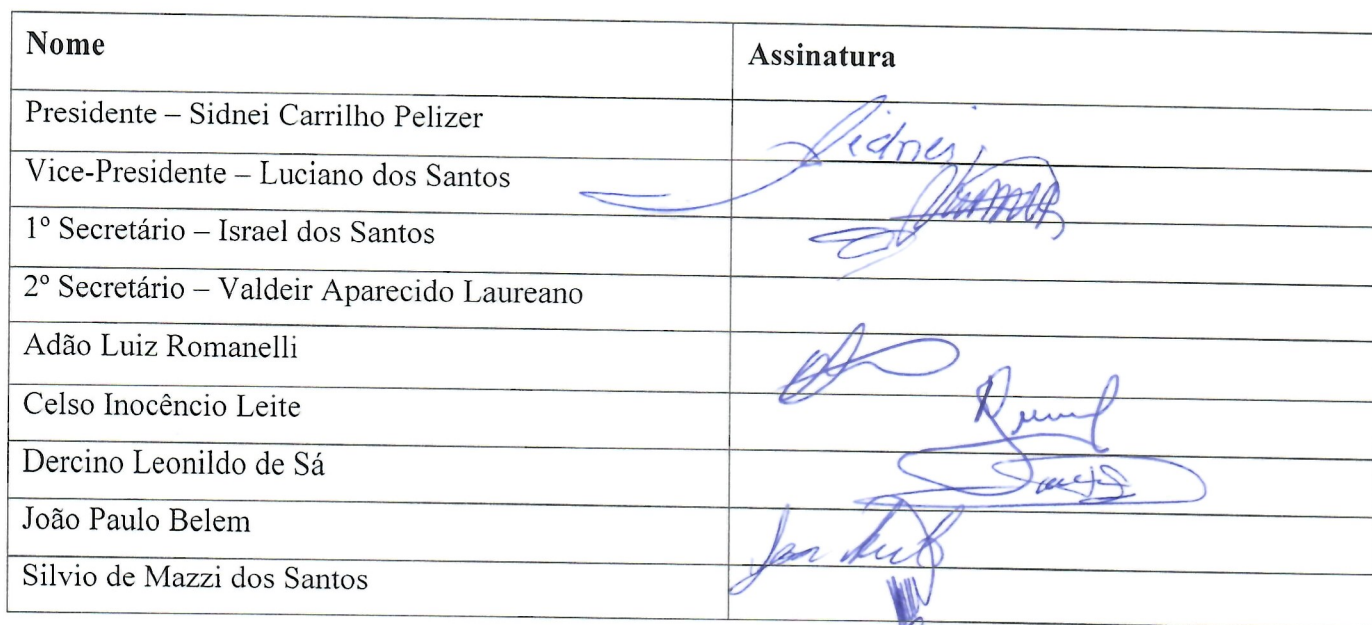 Nome
Assinatura
Presidente – Sidnei Carrilho Pelizer
Sidnei
Vice-Presidente – Luciano dos Santos
1º Secretário – Israel dos Santos
2º Secretário – Valdeir Aparecido Laureano
Adão Luiz Romanelli
Celso Inocêncio Leite
Dercino Leonildo de Sá
João Paulo Belem
Silvio de Mazzi dos Santos